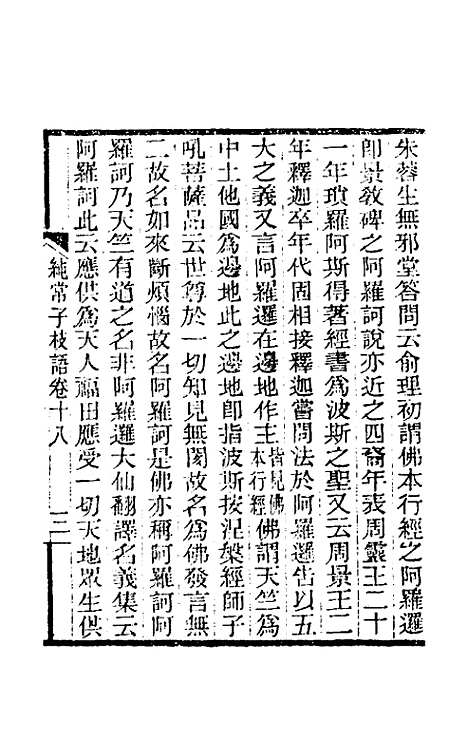 朱蓉生無邪堂答問云俞理初謂佛本行經之阿羅邏
卽景敎碑之阿羅訶說亦近之四裔年表周靈王二十
一年瑣羅阿斯得著經書爲波斯之聖又云周景王二
年釋迦卒年代固相接釋迦嘗問法於阿羅邏告以五
大之義又言阿羅邏在邊地作主皆見佛本行經佛謂天竺爲
中土他國爲邊地此之邊地卽指波斯按涅槃經師子
吼菩薩品云世尊於一切知見無閡故名爲佛發言無
二故名如來斷煩惱故名阿羅訶是佛亦稱阿羅訶阿
羅訶乃天竺有道之名非阿羅邏大仙翻譯名義集云
阿羅訶此云應供爲天人福田應受一切天地眾生供
純常子枝語卷十八